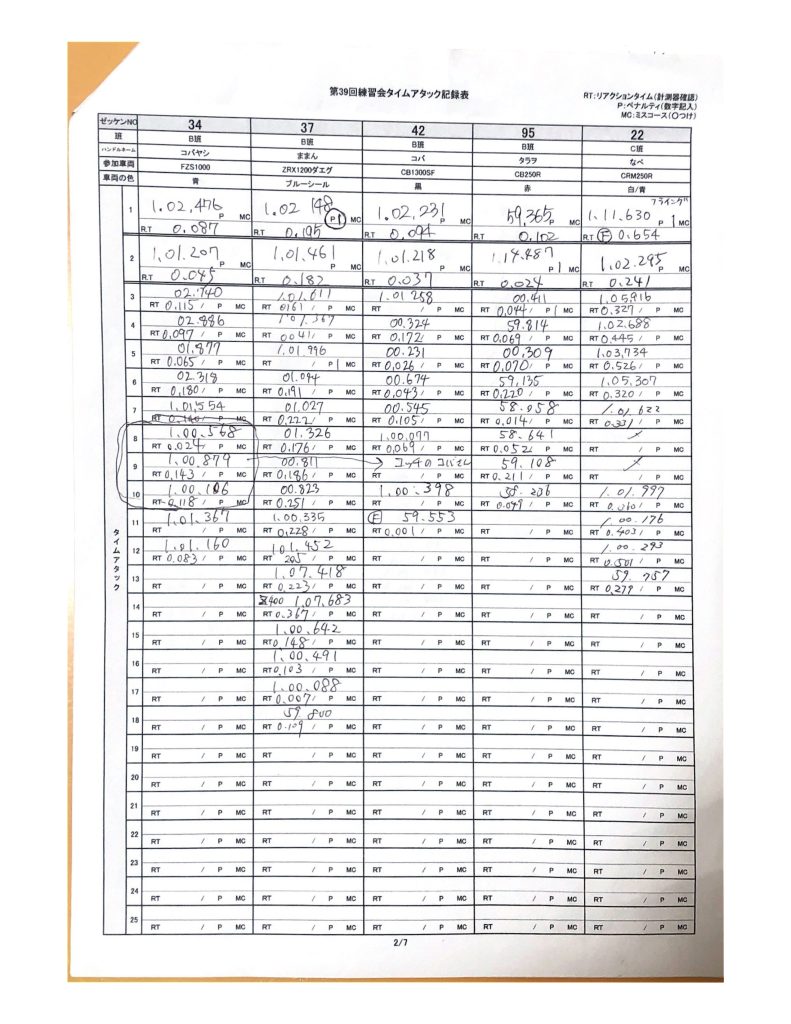 第39回練習会タイムアタック記録表
RT:リアクションタイム(計測器確認)
P:ペナルティ(数字記入)
MC:ミスコース(○つけ)
ゼッケンNO 34 37 42 95 22
班 B班 B班 B班 B班 C班
ハンドルネーム コバヤシ ままん コバ タラヲ なべ
参加車両 FZS1000 ZRX1200ダエグ CB1300SF CB250R CRM250R
車両の色 青 ブルーシール 黒 赤 白/青
タイムアタック
フライング
1 1.02,476 P MC 1.02 148 P1 MC 1.02,231 P MC 59,365 P MC 1.11.630 P 1 MC
R.T 0.087 R.T 0.195 R.T 0.094 R.T 0.102 R.T F 0.654
2 1,01.207 P MC 1,01.461 P MC 1.01.218 P MC 1.14.487 P 1 MC 1.02.295 P MC
R.T 0.045 R.T 0.182 R.T 0.037 R.T 0.024 R.T 0.241
3 02.740 1.01.611 1.01 258 00.411 1.05916
RT 0.115 / P MC RT 0161 / P MC RT / P MC RT 0,044 / P 1 MC RT 0.327 / P MC
4 02.886 1'01.367 00.324 59.814 1.02.688
RT 0,097 / P MC RT 0041 / P MC RT 0.172 / P MC RT 0.069 / P MC RT 0.445 / P MC
5 01.877 1,01.996 00.231 00,309 1.03,734
RT 0.065 / P MC RT / P 1 MC RT 0,026 / P MC RT 0.070 / P MC RT 0.526 / P MC
6 02.318 01.094 00.674 59,135 1.05,307
RT 0,180 / P MC RT 0.191 / P MC RT 0.043 / P MC RT 0.220 / P MC RT 0.320 / P MC
7 1,01,554 01.027 00.545 58.058 1.01.622
RT 0.140 / P MC RT 0.222 / P MC RT 0.105 / P MC RT 0.014 / P MC RT 0.331 / P MC
8 1.00,568 01.326 1,00.097 58.641
RT 0.024 / P MC RT 0.176 / P MC RT 0,069 / P MC RT 0.052 / P MC RT / P MC
9 1.00.879 00.811 コッチのコバさん 59.108
RT 0.143 / P MC RT 0,186 / P MC RT 0.211 / P MC RT / P MC
10 1.00.106 00.823 1.00.398 58.206 1.01.997
RT 0.118 / P MC RT 0.251 / P MC RT / P MC RT 0.049 / P MC RT 0.060 / P MC
11 1.01.367 1.00.335 F 59.553 1.00.176
RT / P MC RT 0,228 / P MC RT 0.001 / P MC RT / P MC RT 0.403 / P MC
12 1.01.160 101.452 1.00.293
RT 0.083 / P MC RT 205 / P MC RT / P MC RT / P MC RT 0.501 / P MC
13 1.07.418 59.757
RT / P MC RT 0.223 / P MC RT / P MC RT / P MC RT 0.279 / P MC
14 Z400 1,07.683
RT / P MC RT 0.367 / P MC RT / P MC RT / P MC RT / P MC
15 1.00.642
RT / P MC RT 0.148 / P MC RT / P MC RT / P MC RT / P MC
16 1.00.491
RT / P MC RT 0,103 / P MC RT / P MC RT / P MC RT / P MC
17 1.00.088
RT / P MC RT 0.007 / P MC RT / P MC RT / P MC RT / P MC
18 59.800
RT / P MC RT 0.109 / P MC RT / P MC RT / P MC RT / P MC
19
RT / P MC RT / P MC RT / P MC RT / P MC RT / P MC
20
RT / P MC RT / P MC RT / P MC RT / P MC RT / P MC
21
RT / P MC RT / P MC RT / P MC RT / P MC RT / P MC
22
RT / P MC RT / P MC RT / P MC RT / P MC RT / P MC
23
RT / P MC RT / P MC RT / P MC RT / P MC RT / P MC
24
RT / P MC RT / P MC RT / P MC RT / P MC RT / P MC
25
RT / P MC RT / P MC RT / P MC RT / P MC RT / P MC
2/7